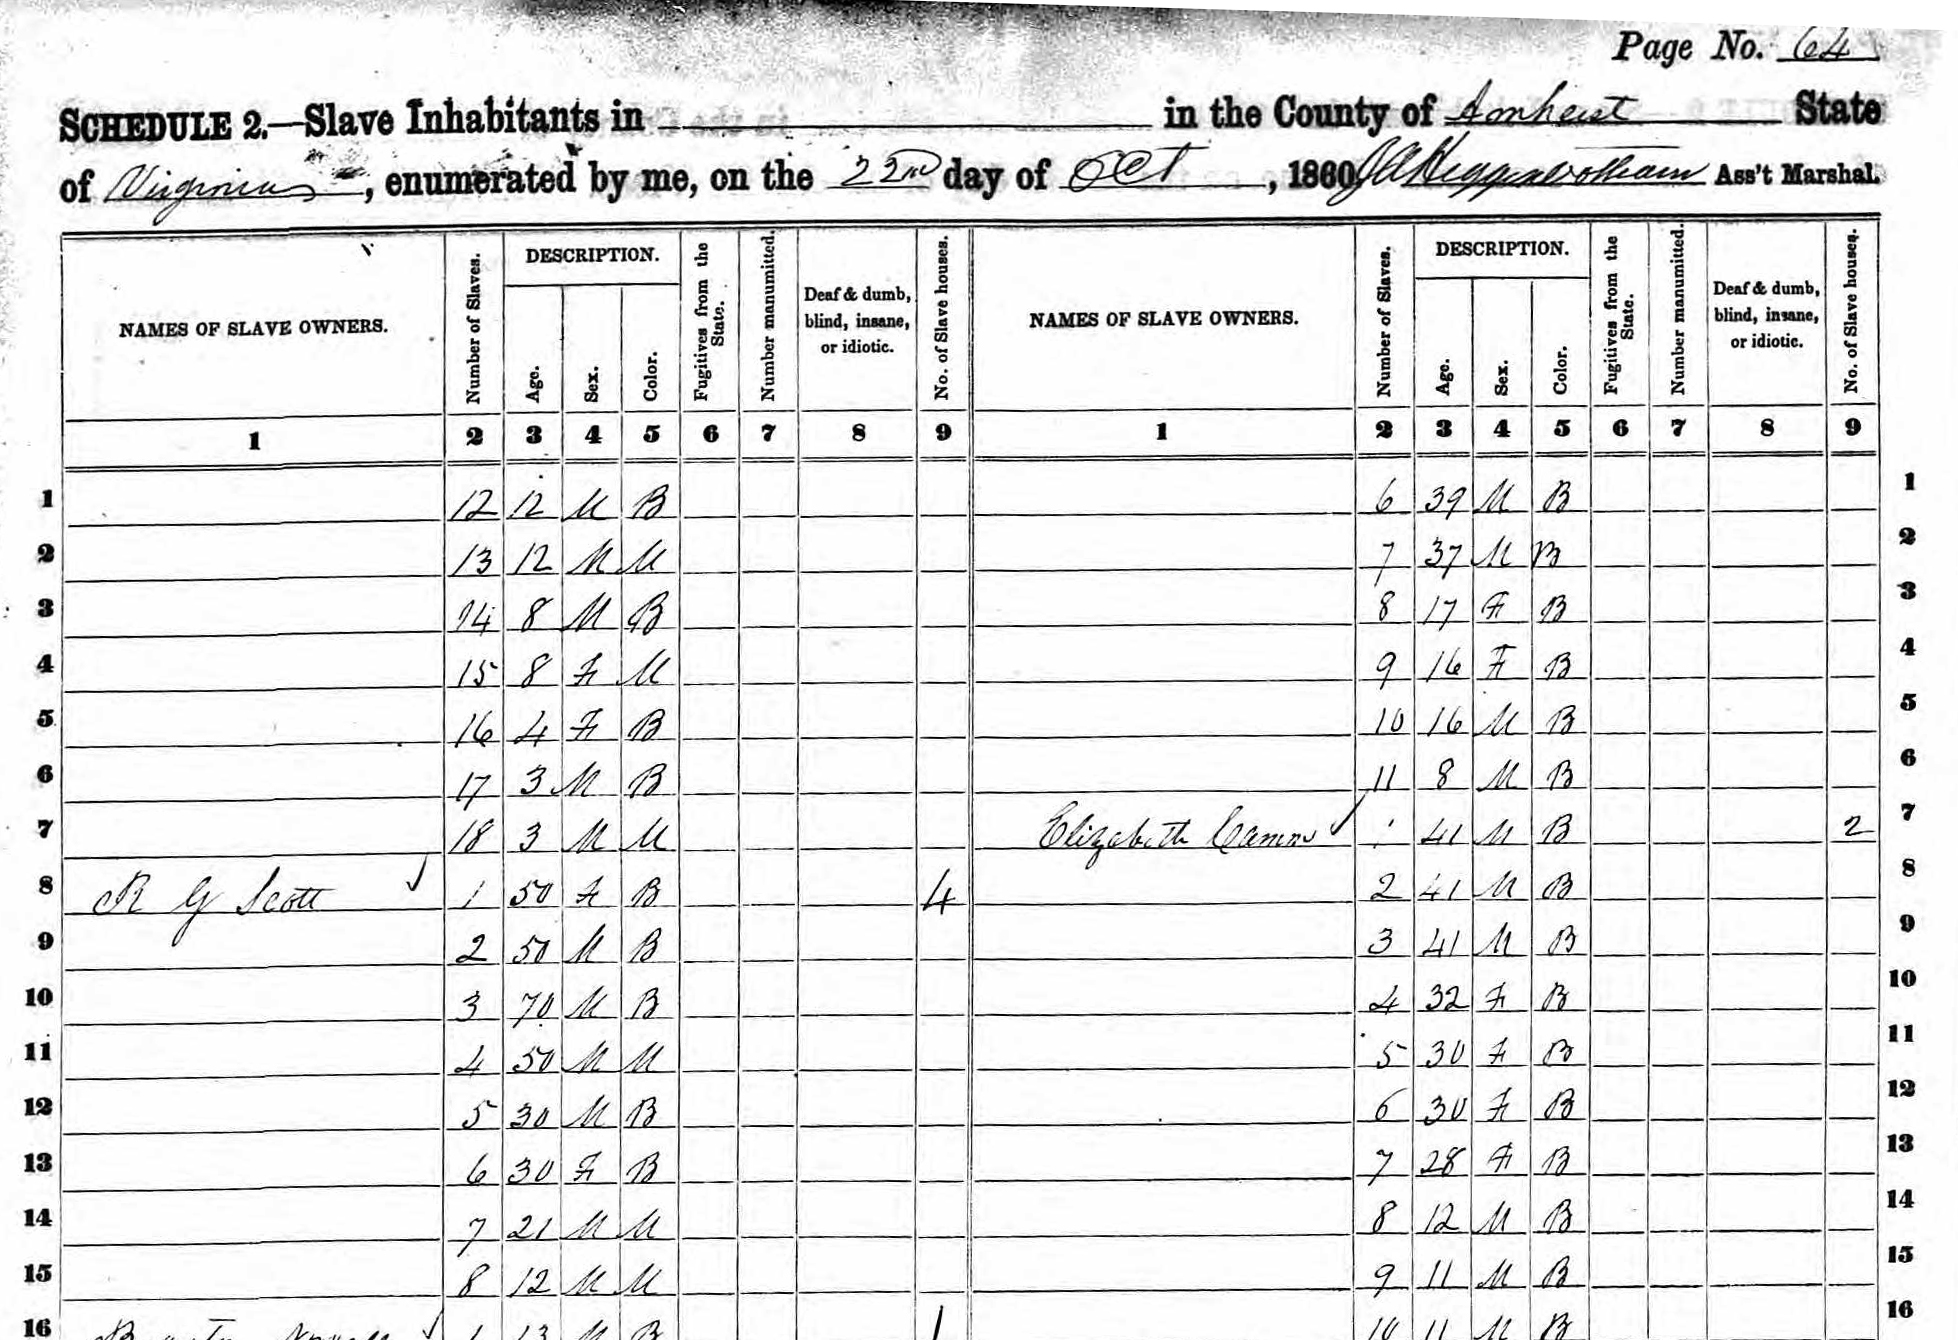 Page No. 64
SCHEDULE 2.—Slave Inhabitants in in the County of Amherst State
of Virginia, enumerated by me, on the 22nd day of Oct, 1860 J A Higginbotham Ass't Marshal.
NAMES OF SLAVE OWNERS. Number of Slaves. DESCRIPTION. Age. Sex. Color. Fugitives from the State. Number manumitted. Deaf & dumb, blind, insane, or idiotic. No. of Slave houses. NAMES OF SLAVE OWNERS. Number of Slaves. DESCRIPTION. Age. Sex. Color. Fugitives from the State. Number manumitted. Deaf & dumb, blind, insane, or idiotic. No. of Slave houses.
1 2 3 4 5 6 7 8 9 1 2 3 4 5 6 7 8 9
1 12 12 M B 6 39 M B 1
2 13 12 M M 7 37 M B 2
3 14 8 M B 8 17 F B 3
4 15 8 F M 9 16 F B 4
5 16 4 F B 10 16 M B 5
6 17 3 M B 11 8 M B 6
7 18 3 M M Elizabeth Camm 1 41 M B 2 7
8 R G Scott 1 50 F B 4 2 41 M B 8
9 2 50 M B 3 41 M B 9
10 3 70 M B 4 32 F B 10
11 4 50 M M 5 30 F B 11
12 5 30 M B 6 30 F B 12
13 6 30 F B 7 28 F B 13
14 7 21 M M 8 12 M B 14
15 8 12 M M 9 11 M B 15
16 1 13 M B 1 10 11 M B 16